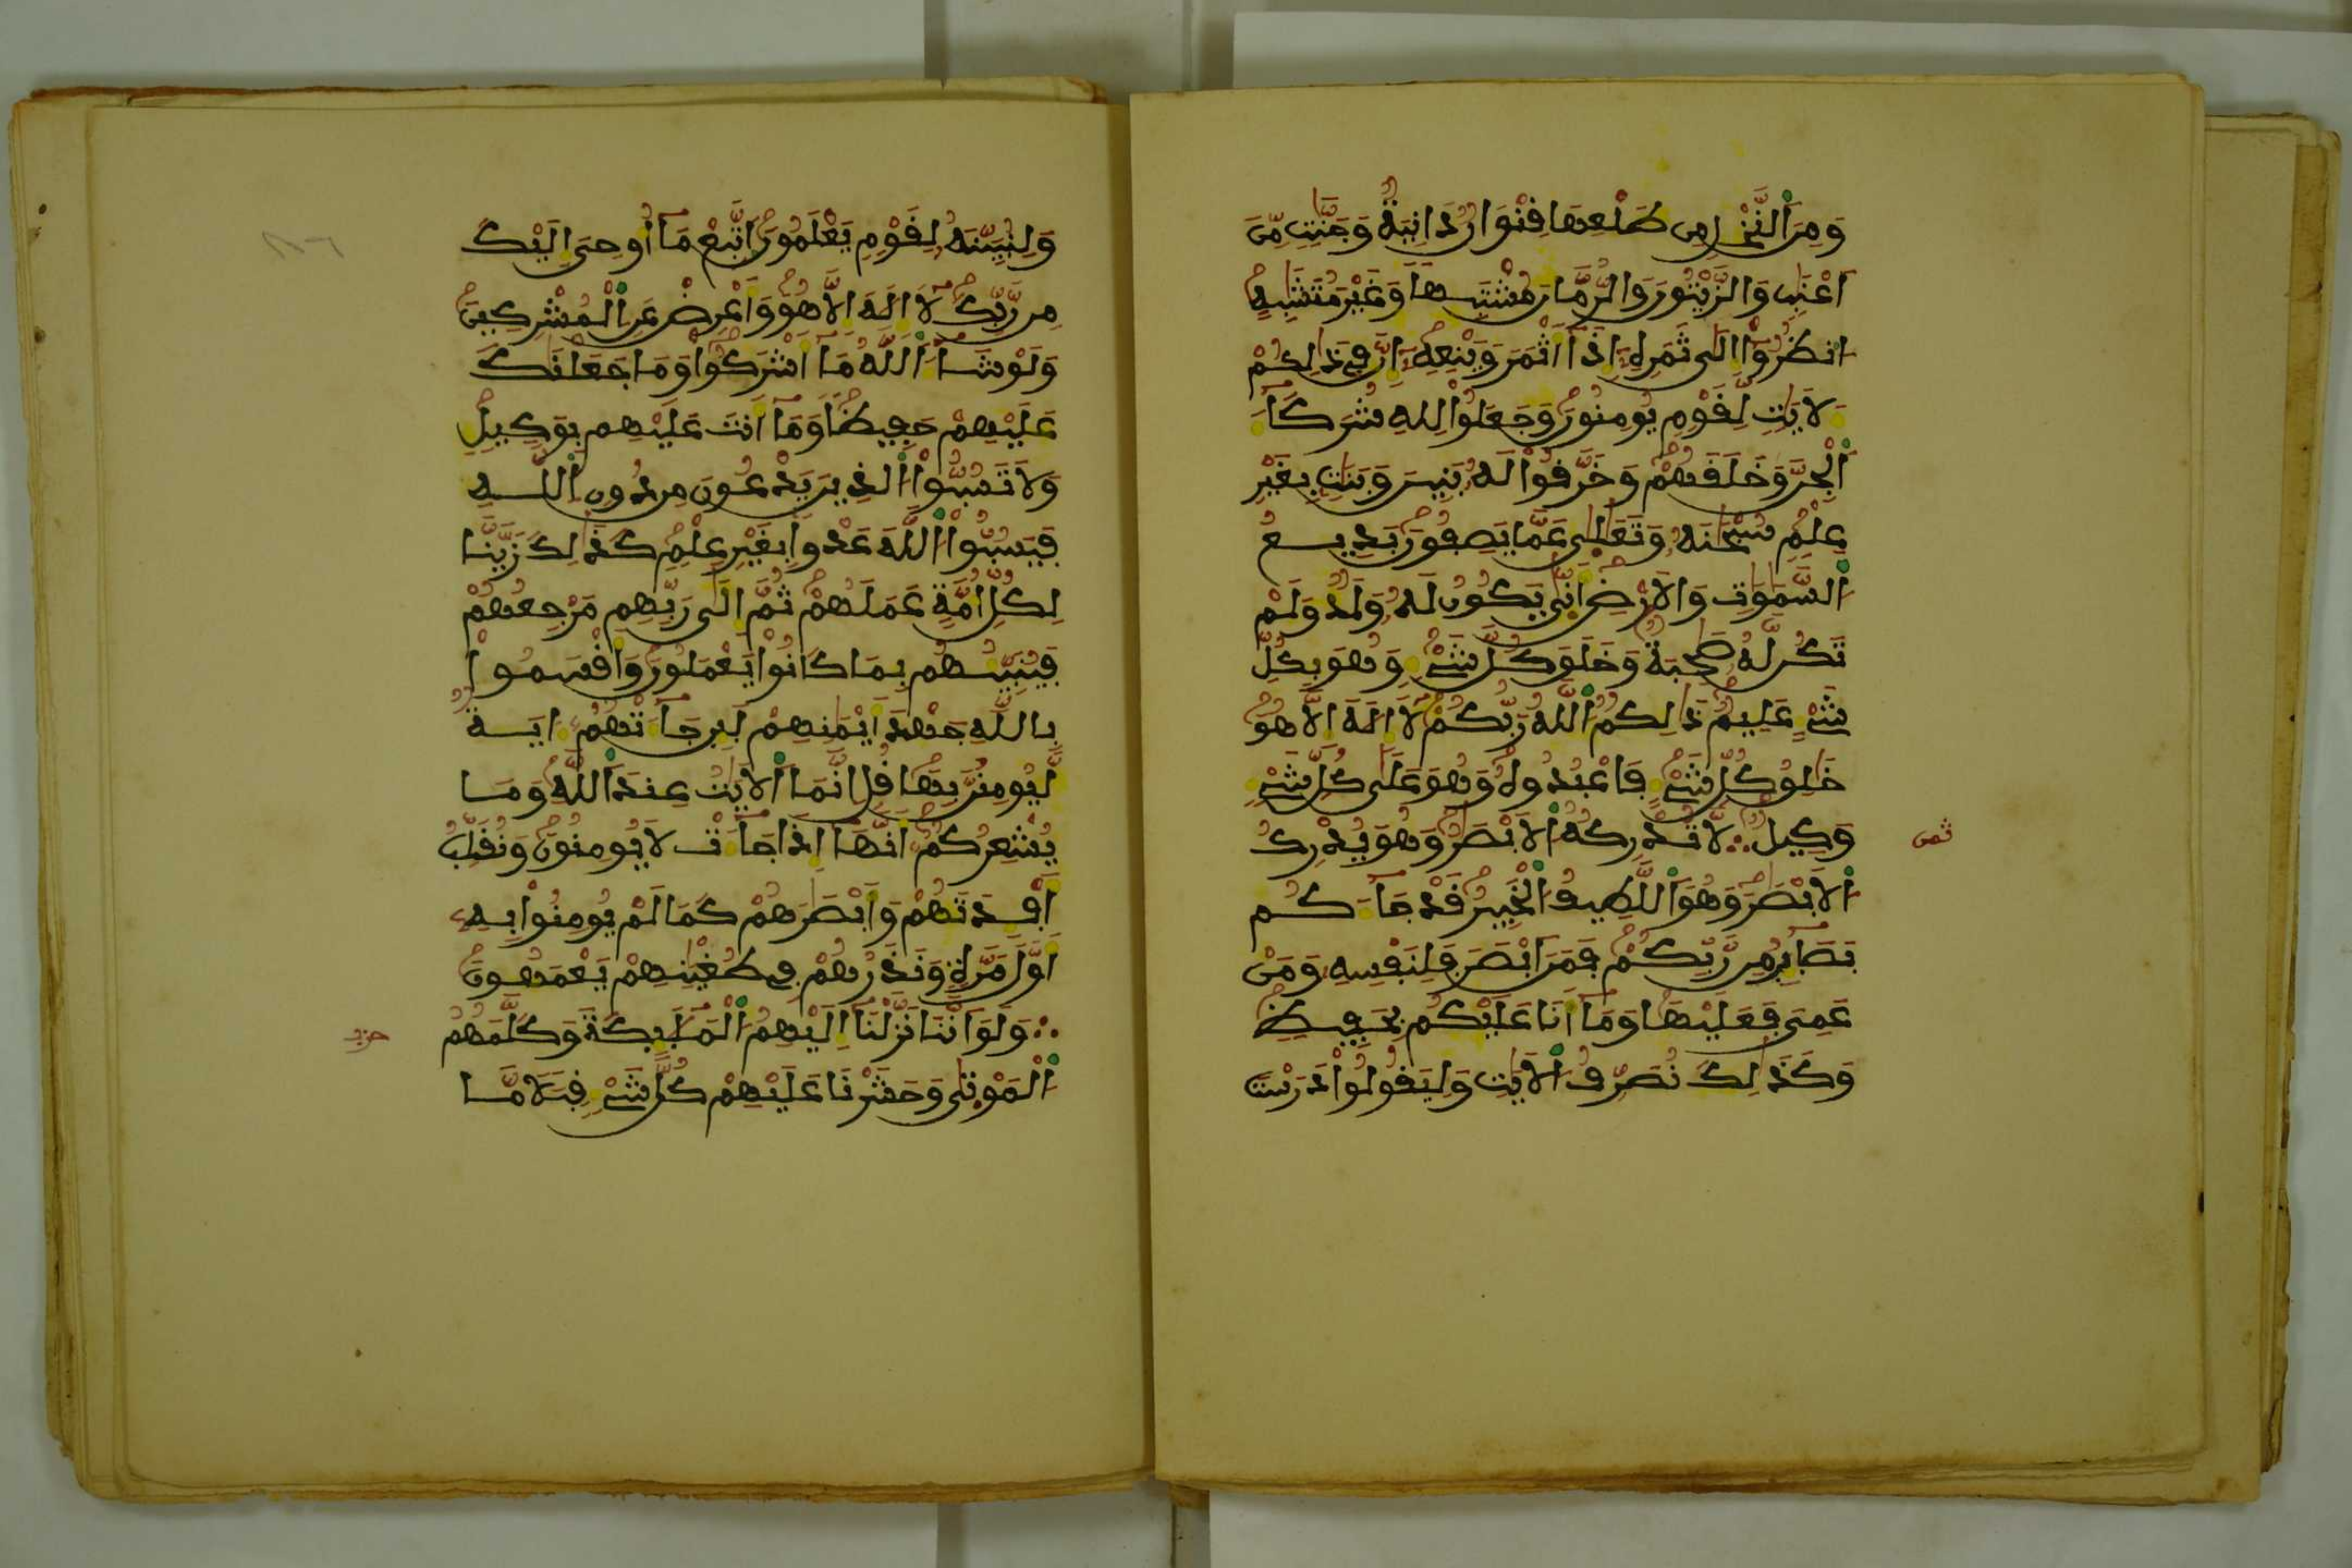 وَمِنَ اَ۬لنَّخْلِ مِن طَلْعِهَا فِنْوَانٌ دَانِيَةٌ وَجَنَّٰتٍ مِّنَ
اَعْنَٰبٍ وَالزَّيْتُونَ وَالرُّمَّانَ مُشْتَبِهاً وَغَيْرَ مُتَشَٰبِهٍ
اٟنظُرُوٓاْ إِلَىٰ ثَمَرِهِۦٓ إِذَآ أَثْمَرَ وَيَنْعِهِۦٓ إِنَّ فِے ذَٰلِكُمْ
لَأَيَٰتٍ لِّفَوْمٍ يُومِنُونَ وَجَعَلُواْ لِلهِ شُرَكَآءَ
اَ۬لْجِنَّ وَخَلَفَهُمْ وَخَرَّفُواْ لَهُۥ بَنِينَ وَبَنَٰتٍ بِغَيْرِ
عِلْمٍ سُبْحَٰنَهُۥ وَتَعَٰلَىٰ عَمَّا يَصِفُونَ بَدِيعُ
اُ۬لسَّمَٰوَٰتِ وَالَارْضِ أَنّ۪ىٰ يَكُونُ لَهُۥ وَلَدٌ وَلَمْ
تَكُن لَّهُۥ صَٰحِبَةٌ وَخَلَقَ كُلَّ شَےْءٍ وَهُوَ بِكُلِّ
شَےْءٍ عَلِيمٌ ذَٰلِكُمُ اُ۬للَّهُ رَبُّكُمْ لَآ إِلَٰهَ إِلَّا هُوَ
خَٰلِقُ كُلِّ شَےْءٍ فَاعْبُدُوهُ وَهُوَ عَلَىٰ كُلِّ شَےْءٍ
وَكِيلٌ ∴ لَّا تُدْرِكُهُ اُ۬لَابْصَٰرُ وَهُوَ يُدْرِكُ
اُ۬لَابْصَٰرَ وَهُوَ اَ۬للَّطِيفُ اُ۬لْخَبِيرُ فَدْ جَآءَكُم
بَصَآئِرُ مِن رَّبِّكُمْ فَمَنَ اَبْصَرَ فَلِنَفْسِهِۦ وَمَنْ
عَمِيَ فَعَلَيْهَا وَمَآ أَنَا عَلَيْكُم بِحَفِيظٍ
وَكَذَٰلِكَ نُصَرِّفُ اُ۬لَايَٰتِ وَلِيَفُولُواْ دَرَسْتَ
ثمن
وَلِنُبَيِّنَهُۥ لِفَوْمٍ يَعْلَمُونَ اَتَّبِعْ مَآ أُوحِيَ إِلَيْكَ
مِن رَّبِّكَ لَآ إِلَٰهَ إِلَّا هُوَ وَأَعْرِضْ عَنِ اِ۬لْمُشْرِكِينَ
وَلَوْ شَآءَ اَ۬للَّهُ مَآ أَشْرَكُواْ وَمَا جَعَلْنَٰكَ
عَلَيْهِمْ حَفِيظاً وَمَآ أَنتَ عَلَيْهِم بِوَكِيلٍ
وَلَا تَسُبُّواْ اُ۬لذِينَ يَدْعُونَ مِن دُونِ اِ۬للَّهِ
فَيَسُبُّواْ اُ۬للَّهَ عَدْواً بِغَيْرِ عِلْمٍ كَذَٰلِكَ زَيَّنَّا
لِكُلِّ أُمَّةٍ عَمَلَهُمْ ثُمَّ إِلَىٰ رَبِّهِم مَّرْجِعُهُمْ
فَيُنَبِّئُهُم بِمَا كَانُواْ يَعْمَلُونَ وَأَفْسَمُواْ
بِاللَّهِ جَهْدَ أَيْمَٰنِهِمْ لَئِن جَآءَتْهُمُۥٓ ءَايَةٌ
لَّيُومِنُنَّ بِهَا فُلِ اِنَّمَا اَ۬لَايَٰتُ عِندَ اَ۬للَّهِ وَمَا
يُشْعِرُكُمُۥٓ أَنَّهَآ إِذَا جَآءَتْ لَا يُومِنُونَ وَنُفَلِّبُ
أَفْـِٕدَتَهُمْ وَأَبْصَٰرَهُمْ كَمَا لَمْ يُومِنُواْ بِهِۦٓ
أَوَّلَ مَرَّةٍ وَنَذَرُهُمْ فِے طُغْيَٰنِهِمْ يَعْمَهُونَ
∴ وَلَوَ اَنَّنَا نَزَّلْنَآ إِلَيْهِمُ اُ۬لْمَلَٰٓئِكَةَ وَكَلَّمَهُمُ
اُ۬لْمَوْتَىٰ وَحَشَرْنَا عَلَيْهِمْ كُلَّ شَےْءٍ فِبَلًا مَّا
حزب